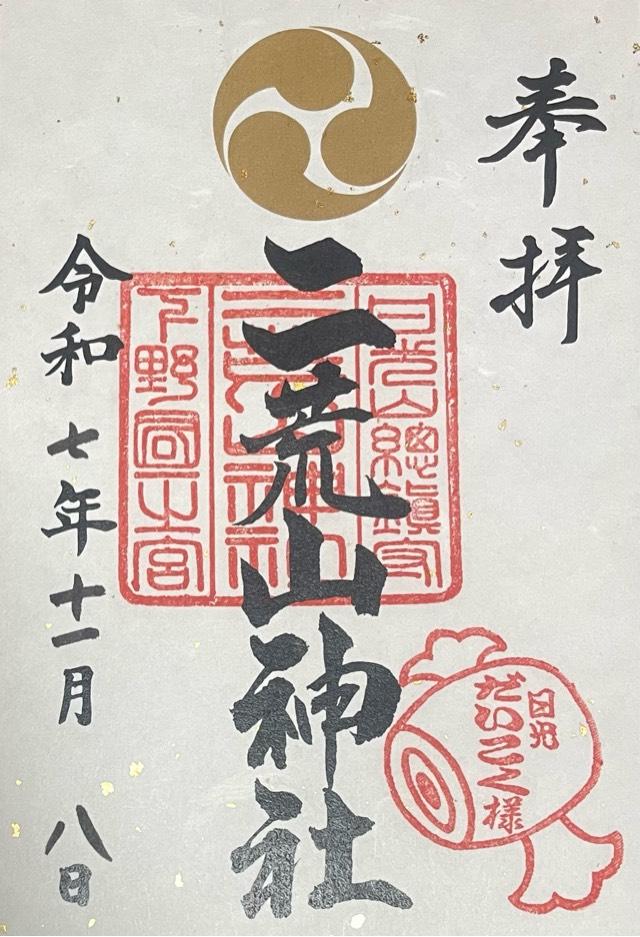 奉拝
日光山總鎮守
二荒山神社
下野國一之宮
二荒山神社
日光
だいこく様
令和七年十一月八日